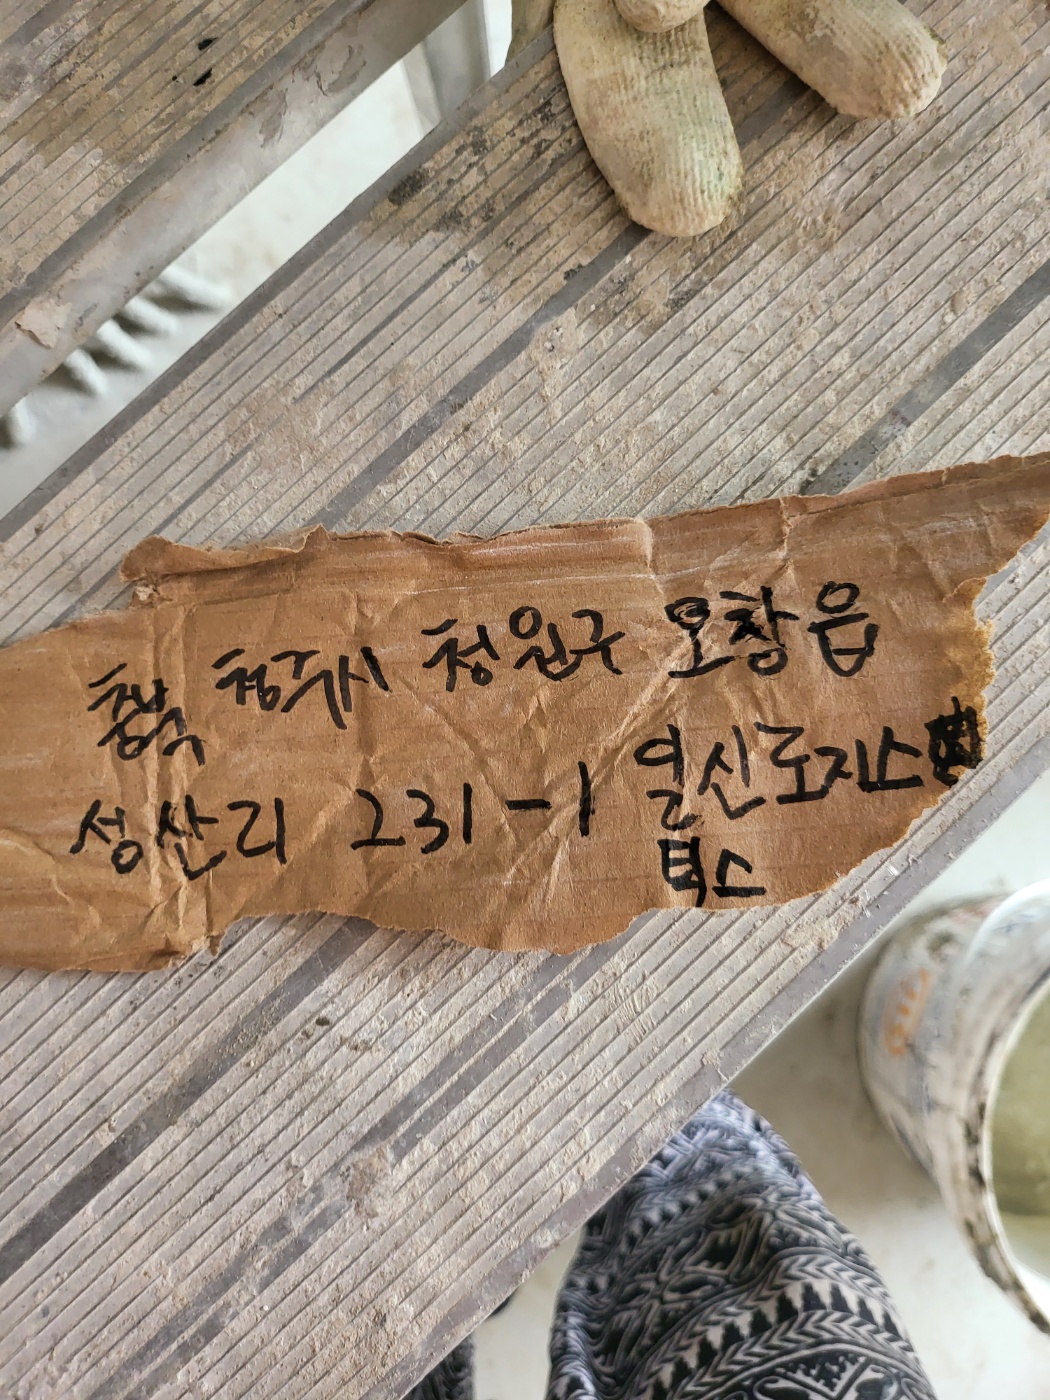 충북 청주시 청원구 오창읍
성산리 231-1 일신로지스
틱스